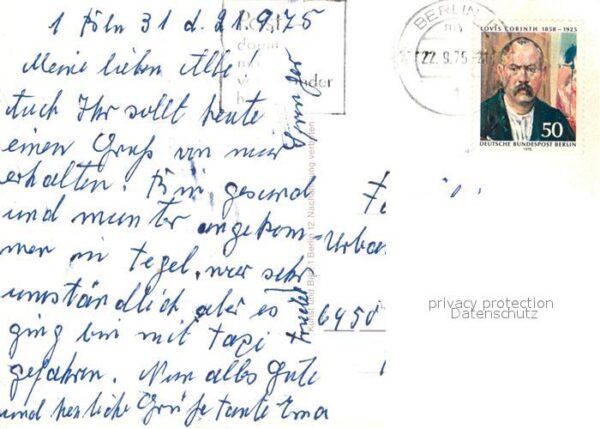 1 Köln 31 d. 21.9.75
Meine lieben Alle!
Auch Ihr sollt heute
einen Gruß von mir
erhalten. Bin gesund
und munter angekom-
men in Tegel, war sehr
umständlich aber es
ging bin mit Taxi
gefahren. Nun alles Gute
und herzliche Grüße Tante Erna
Post
BERLIN
22.9.75
1
LOVIS CORINTH 1858-1925
50
DEUTSCHE BUNDESPOST BERLIN
1975
Kunst und Bild 1 Berlin 12 Nachahmung verboten
Urban
6450
privacy protection
Datenschutz